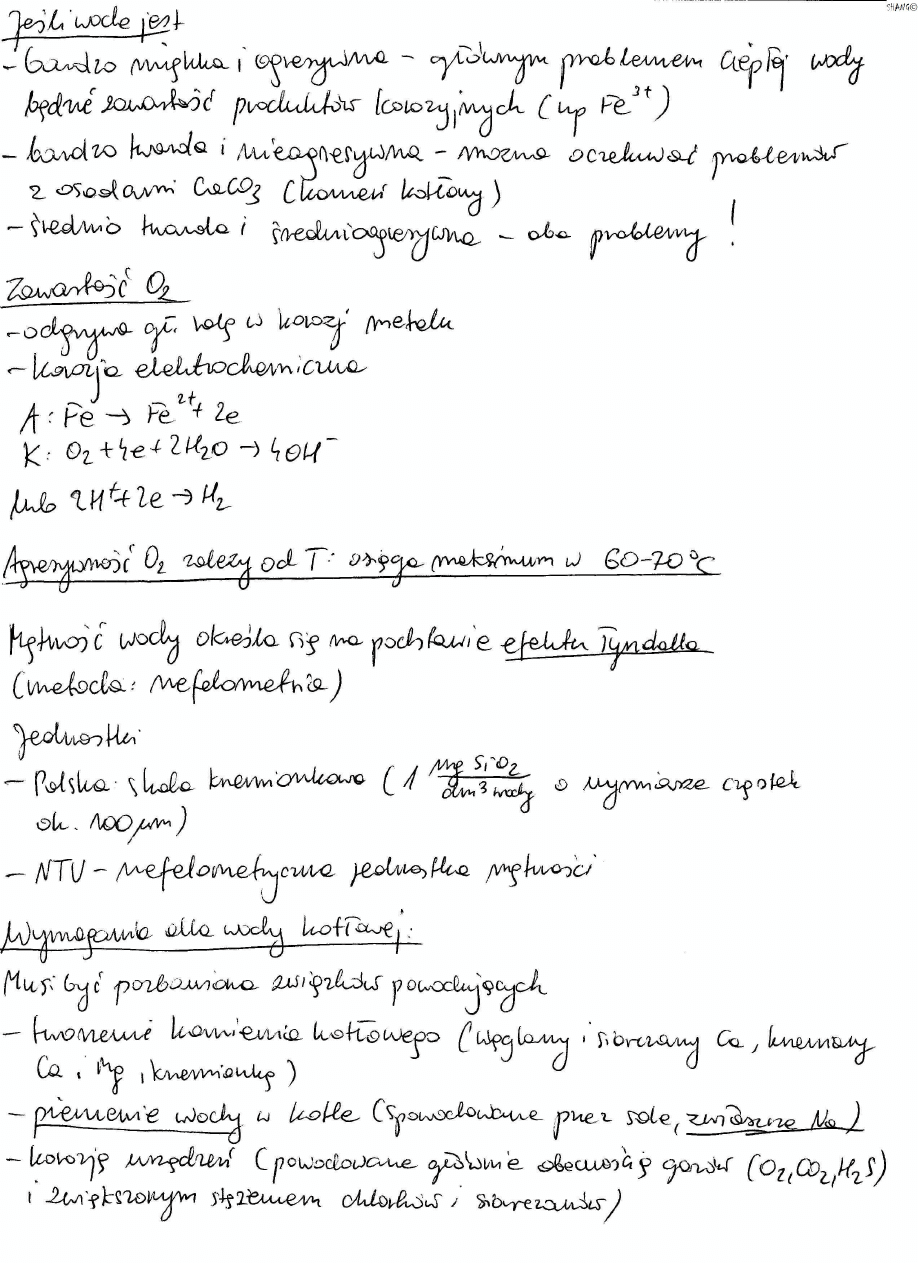 SHANG©
Jeśli woda jest
- bardzo miękka i agresywna - głównym problemem ciepłej wody
będzie zawartość produktów korozyjnych (np Fe³⁺)
- bardzo twarda i nieagresywna - można oczekiwać problemów
z osadami CaCO₃ (kamień kotłowy)
- średnio twarda i średnioagresywna - oba problemy !
Zawartość O₂
- odgrywa gł. rolę w korozji metalu
- korozja elektrochemiczna
A: Fe → Fe²⁺ + 2e
K: O₂ + 4e + 2H₂O → 4OH⁻
lub 2H⁺ + 2e → H₂
Agresywność O₂ zależy od T: osiąga maksimum w 60-70°C
Mętność wody określa się na podstawie efektu Tyndalla
(metoda: nefelometria)
Jednostki
- Polska: skala krzemionkowa (1 mg SiO₂ / dm³ wody o wymiarze cząstek
ok. 100 μm)
- NTU - nefelometryczna jednostka mętności
Wymagania dla wody kotłowej:
Musi być pozbawiona związków powodujących
- tworzenie kamienia kotłowego (węglany i siarczany Ca, krzemiany
Ca i Mg, krzemionkę)
- pienienie wody w kotle (spowodowane przez sole, zwłaszcza Na)
- korozję urządzeń (powodowane głównie obecnością gazów (O₂, CO₂, H₂S)
i zwiększonym stężeniem chlorków i siarczanów)